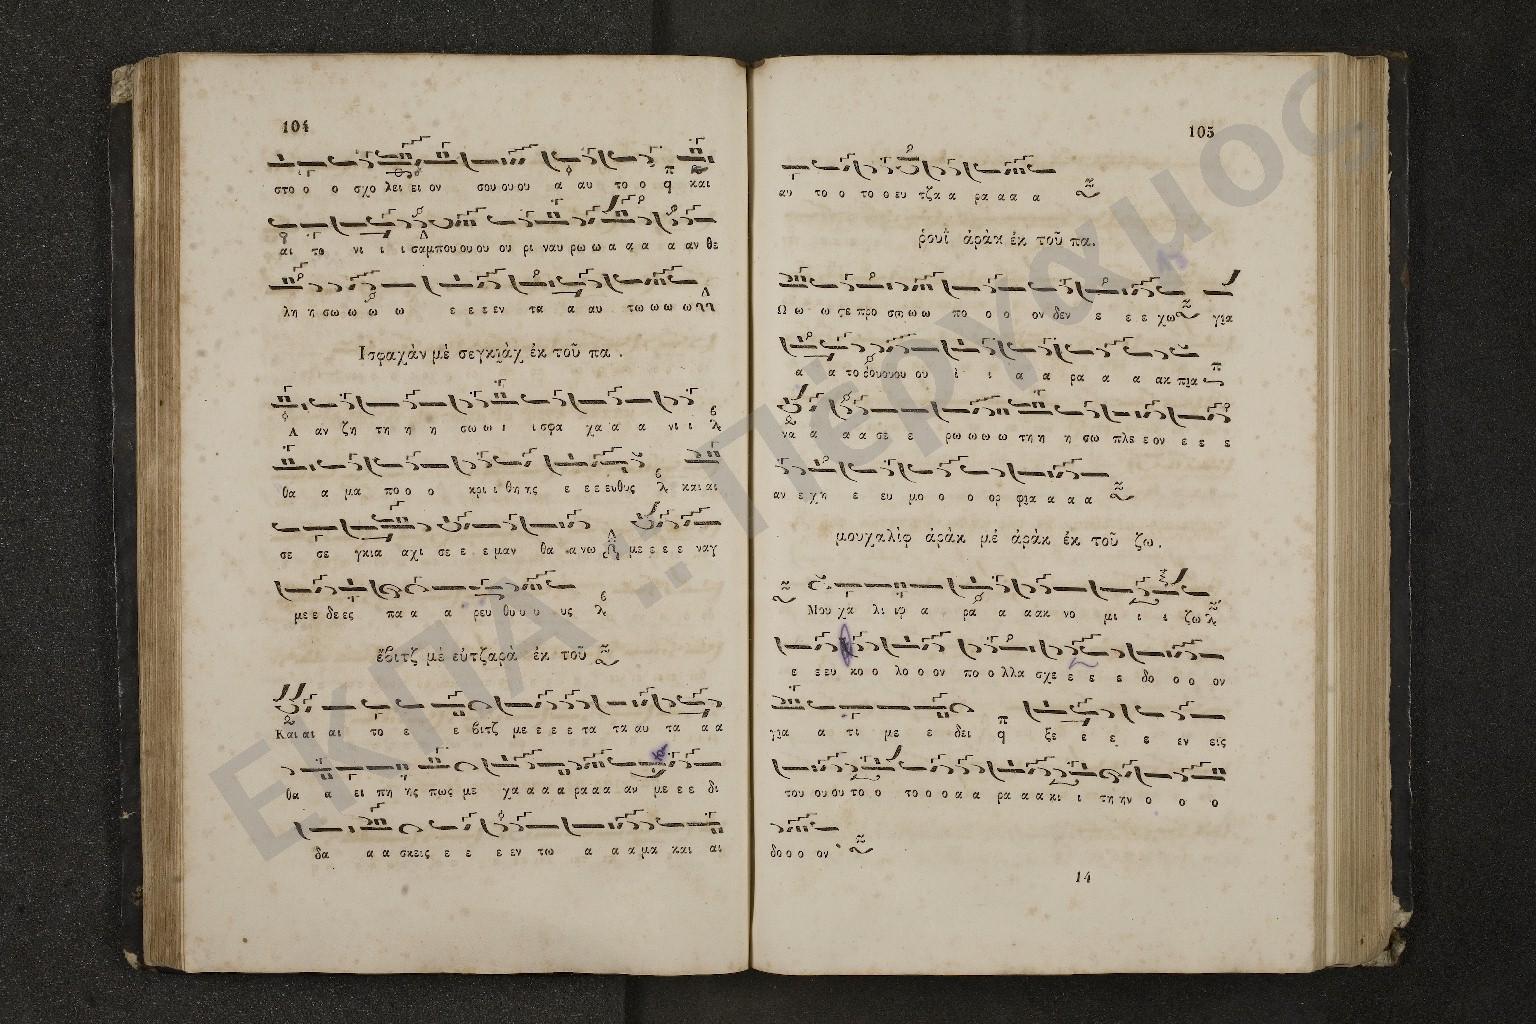 104
στο ο ο σχο λει ει ον σου ου ου α αυ το ο ο και
αι το νι ι ι σαμπου ου ου ου ου ρι ναυ ρω ω α α α α αν θε
λη η σω ω ω ω ε ε ε εν τα α αυ τω ω ω ω
Ισφαχὰν μὲ σεγκιὰχ ἐκ τοῦ πα .
Α αν ζη τη η η σω ω ι ισφα χα α α νι ι
θα α μα πο ο ο κρι ι θη ης ε ε ε ευθυς και αι
σε σε γκια αχι σε ε ε μαν θα α νω με ε ε ε ναγ
με ε δε ες πα α α ρευ θυ υ υ υς
ἔβιτζ μὲ εὐτζαρὰ ἐκ τοῦ
Και αι αι το ε ε βιτζ με ε ε ε τα τα αυ τα α α
θα α ει πη ης πως με χα α α α ρα α α αν με ε ε δι
δα α α σκεις ε ε ε εν τω α α α μα και αι
105
αυ το ο το ο ευ τζα α ρα α α α
ῥουῒ ἀρὰκ ἐκ τοῦ πα.
Ω ω ω τε προ σω ω ω πο ο ο ον δεν ε ε ε χω για
α α το ρουουου ου ι ι α α ρα α α ακ πια
να α α α σε ε ρω ω ω ω τη η η σω πλε ε ον ε ε ε
αν ε χη ε ευ μο ο ο ορ φια α α α
μουχαλὶφ ἀρὰκ μὲ ἀρὰκ ἐκ τοῦ ζω.
Μου χα λι ιφ α ρα α α ακ νο μι ι ι ζω
ε ε ευ κο ο λο ο ον πο ο λλα σχε ε ε ε δο ο ο ον
για α τι με ε δει ξε ε ε ε εν εις
του ου ου το ο το ο ο α α ρα α α κι ι τη ην ο ο ο
δο ο ο ον
14
ΕΚΠΑ ... Πέργαμος